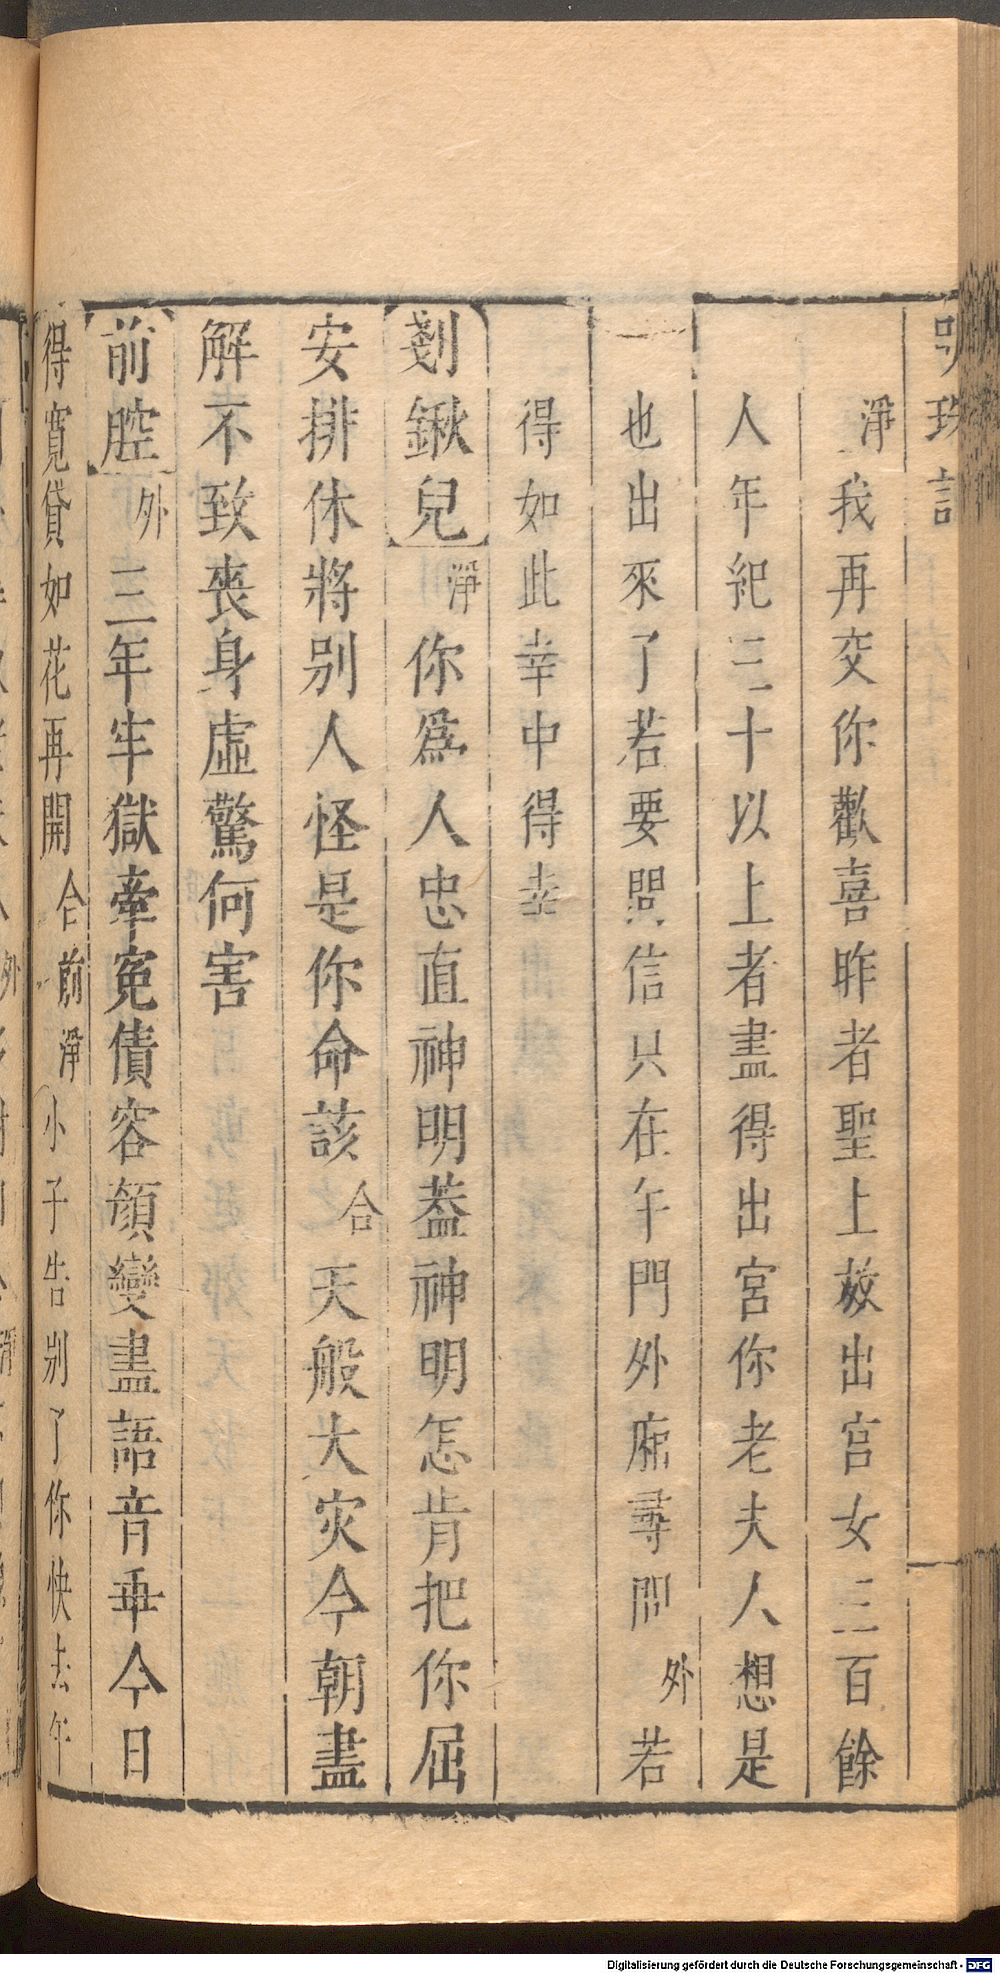 明珠記
淨我再交你歡喜昨者聖上放出宮女三百餘
人年紀三十以上者盡得出宮你老夫人想是
也出來了若要問信只在午門外廂尋問外若
得如此幸中得幸
剗鍬兒淨你爲人忠直神明葢神明怎肯把你屈
安排休將别人怪是你命該合天般大灾今朝盡
解不致喪身虛驚何害
前腔外三年牢獄牽寃債容頟變盡語音乖今日
得寬貸如花再開合前淨小子告别了你快去午
Digitalisierung gefördert durch die Deutsche Forschungsgemeinschaft - DFG